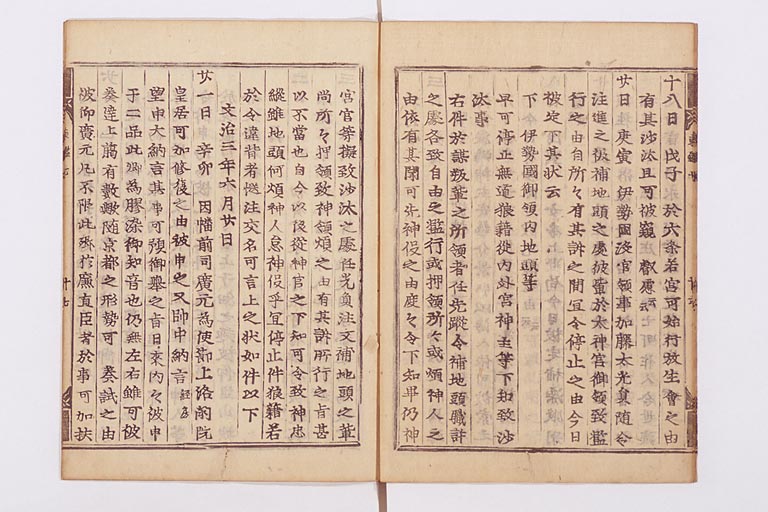 十八日 戊子 於六条若宮可始行放生會之由
有其沙汰且可被窺 叡慮云々
廿日 庚寅 伊勢國没官領事加藤太光員随令
注進之被補地頭之處彼輩於太神宮御領致濫
行之由自所々有其訴之間宜令停止之由今日
被定下其状云
下 伊勢國御領内地頭等
早可停止無道狼藉從内外宮神主等下知致沙
汰事
右件於謀叛輩之所領者任先蹤令補地頭職許
之處各致自由之濫行或押領所々或煩神人之
由依有其聞可先神役之由度々令下知畢仍神
宮官等擬致沙汰之處任光員注文補地頭之輩
尚所々押領致神領煩之由有其訴所行之旨甚
以不當也自今以後從神官之下知可令致神忠
縦雖地頭何煩神人怠神役乎宜停止件狼藉若
於令違背者慥注交名可言上之状如件以下
文治三年六月廿日
廿一日 辛卯 因幡前司廣元為使節上洛前院
皇居可加修復之由被申之又帥中納言經房
望申大納言其事可預御擧之旨日來内々被申
于二品此卿為膠漆御知音也仍無左右雖可被
奏達上﨟有數輩随京都之形勢可 奏試之由
被仰廣元凡不限此卿於廉直臣者於事可加扶